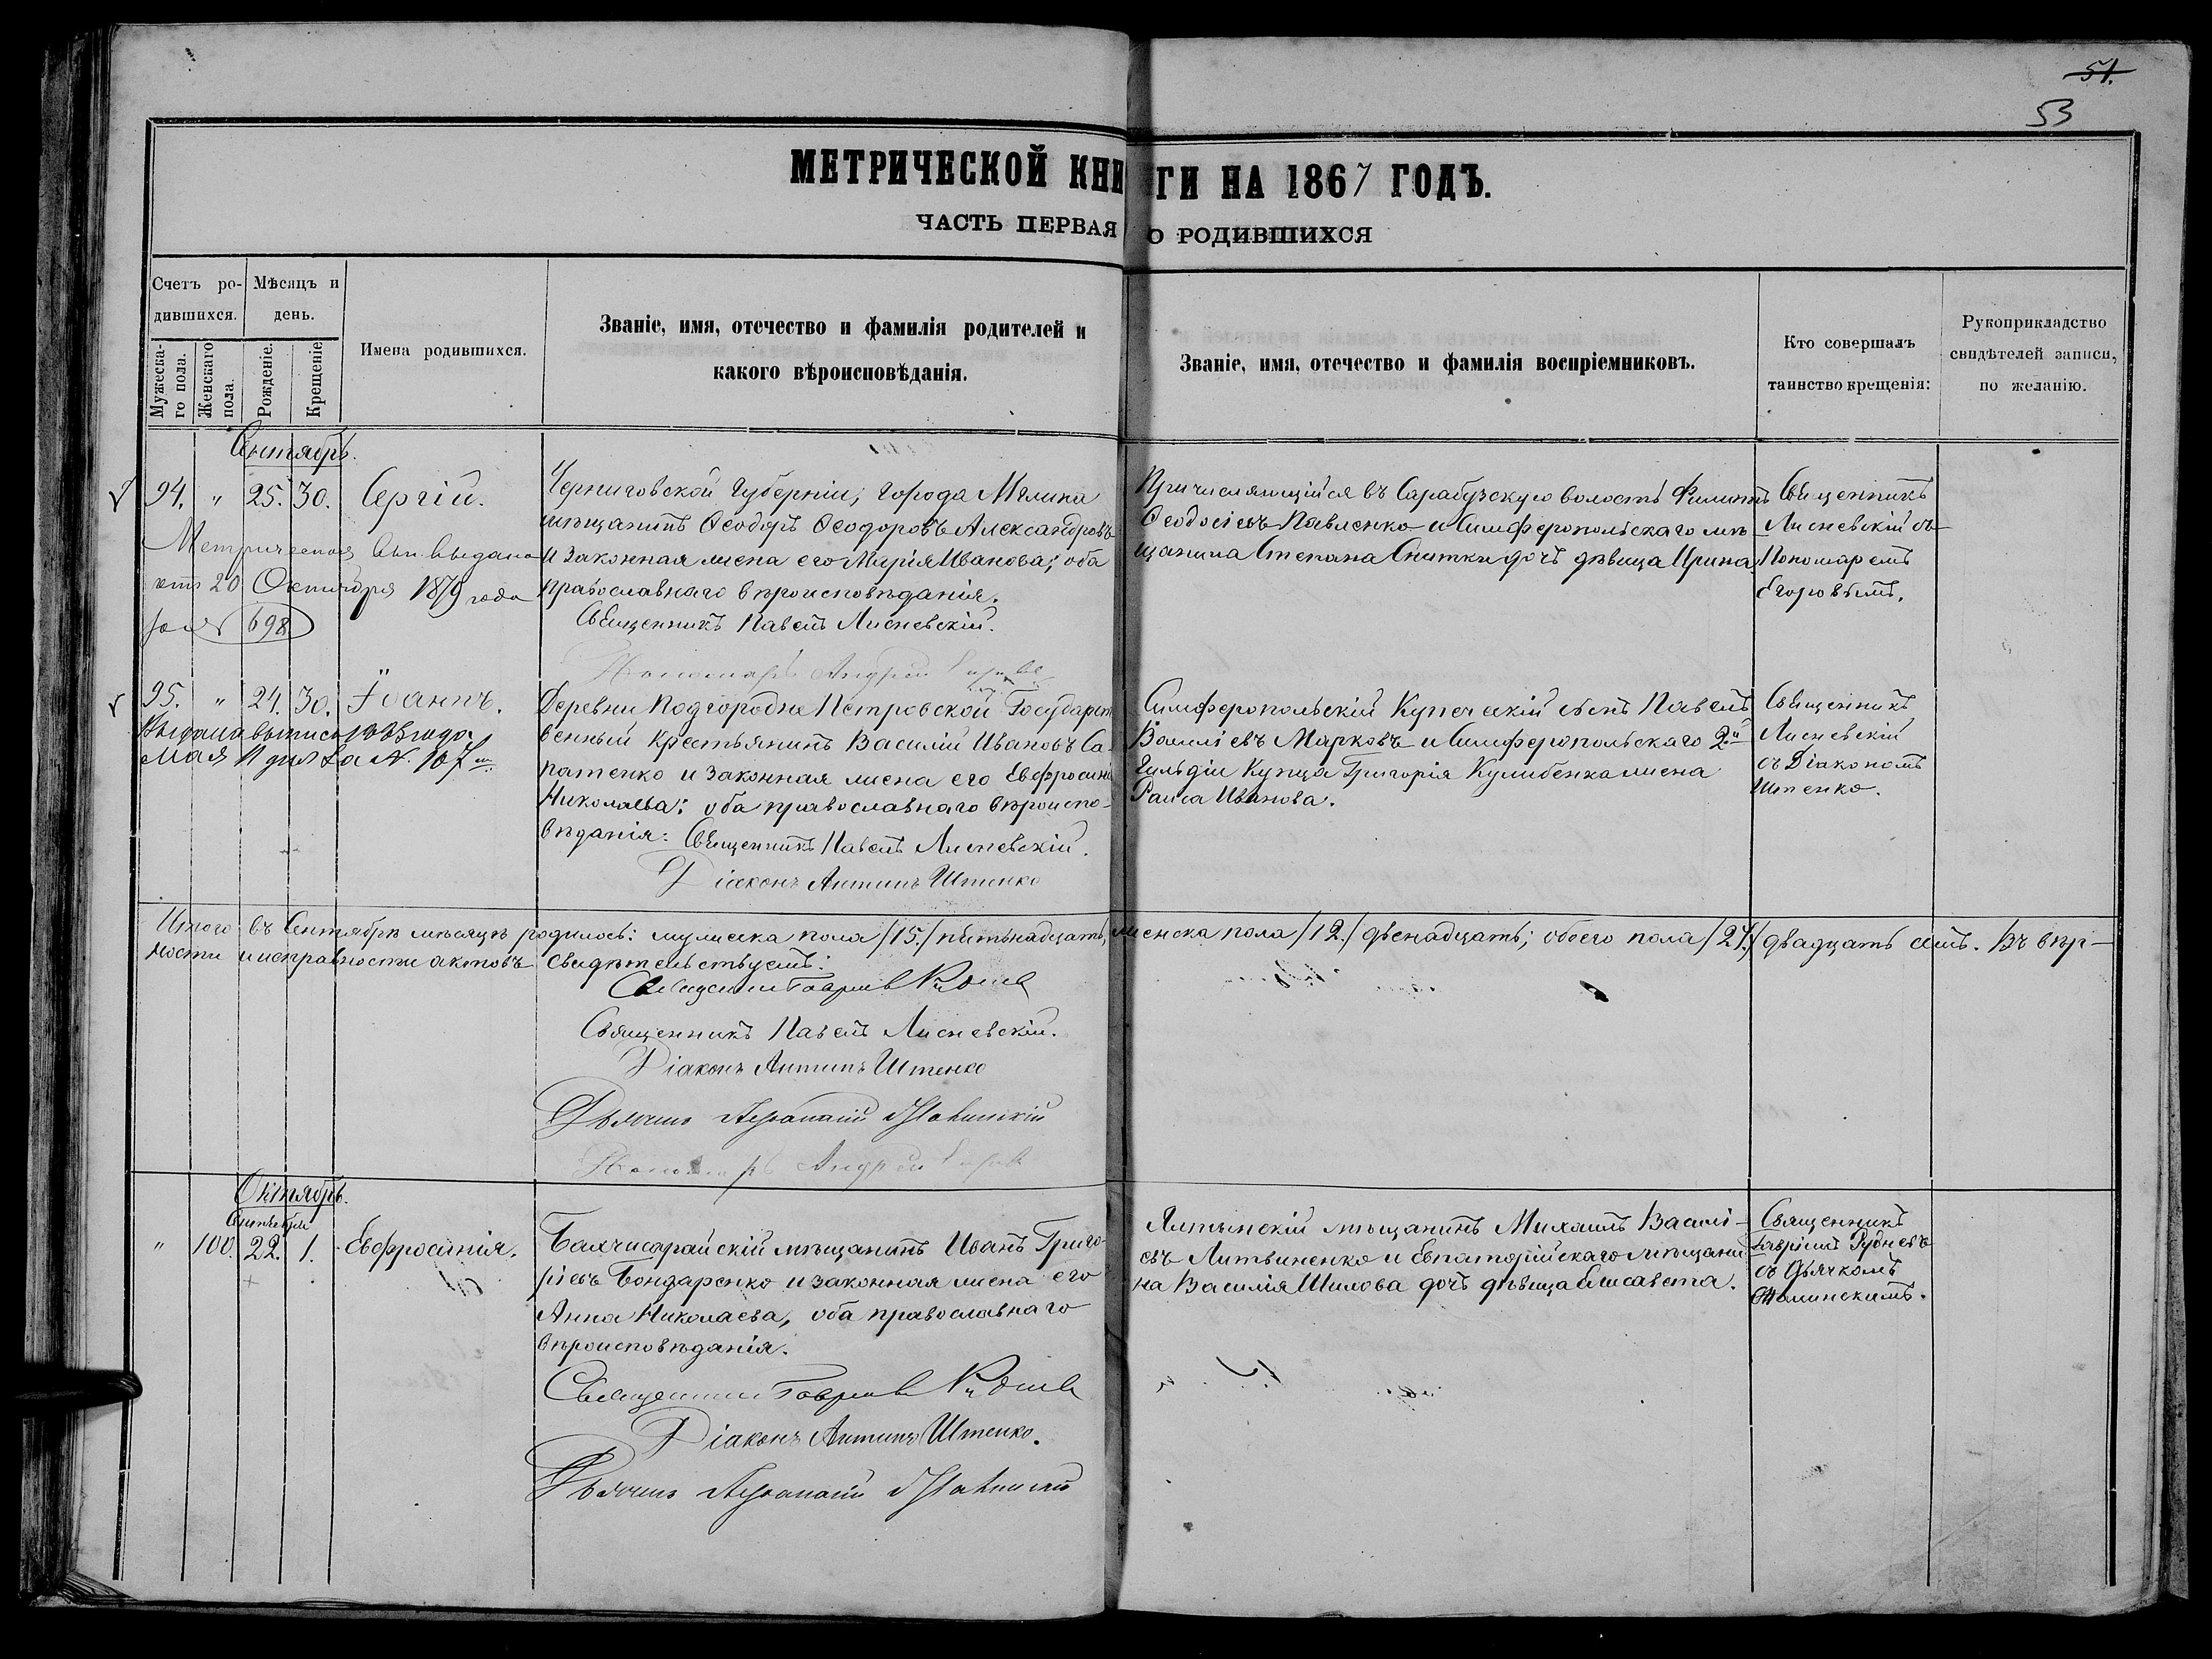 51.
53
МЕТРИЧЕСКОЙ КНИГИ НА 1867 ГОДЪ.
ЧАСТЬ ПЕРВАЯ О РОДИВШИХСЯ
Счетъ ро-
дившихся.
Мужеска-
го пола.
Женскаго
пола.
Мѣсяцъ и
день.
Рожденіе.
Крещеніе
Имена родившихся.
Званіе, имя, отечество и фамилія родителей и
какого вѣроисповѣданія.
Званіе, имя, отечество и фамилія воспріемниковъ.
Кто совершалъ
таинство крещенія:
Рукоприкладство
свидѣтелей записи,
по желанію.
Сентябрь.
94. " 25. 30. Сергій.
Черниговской Губерніи, города Мглина
мѣщанинъ Ѳеодоръ Ѳеодоровъ Александровъ
и законная жена его Марія Иванова; оба
православнаго вѣроисповѣданія.
Священникъ Павелъ Лисневскій.
Пономарь Андрей
Причисляющійся въ Сарабузскую волость Филиппъ
Ѳеодосіевъ Павленко и Симферопольскаго мѣ-
щанина Степана Снитки дочь дѣвица Ирина.
Священникъ
Лисневскій съ
Пономаремъ
Егоровымъ.
Метрическая выдана
20 Октября 1879 года
698
95. " 24. 30. Іоаннъ.
Выдана выпись 1885 года
Мая 11 дня за N. 107
Деревни Подгородне Петровской Государст
венный крестьянинъ Василій Ивановъ Са-
патенко и законная жена его Евфросинія
Николаева: оба православнаго вѣроиспо-
вѣданія: Священникъ Павелъ Лисневскій.
Діаконъ Антипъ Штенко
Симферопольскій Купеческій сынъ Павелъ
Василіевъ Марковъ и Симферопольскаго 2й
Гильдіи Купца Григорія Кулибенка жена
Раиса Иванова.
Священникъ
Лисневскій
съ Діакономъ
Штенко.
Итого въ Сентябрѣ мѣсяцѣ родилось: мужеска пола /15./ пятьнадцать, женска пола /12./ двенадцать; обоего пола /27./ двадцать семь. Въ вѣр-
ности и исправности актовъ свидѣтельствуемъ:
Священникъ Гавріилъ Рудневъ
Священникъ Павелъ Лисневскій.
Діаконъ Антипъ Штенко
Дьячекъ
Пономарь Андрей
Октябрь.
Сентября
" 100. 22. 1. Евфросинія.
Бахчисарайскій мѣщанинъ Иванъ Григо-
ріевъ Бондаренко и законная жена его
Анна Николаева, оба православнаго
вѣроисповѣданія.
Священникъ Гавріилъ Рудневъ
Діаконъ Антипъ Штенко.
Дьячекъ
Ялтынскій мѣщанинъ Михаилъ Василі-
евъ Литвиненко и Евпаторійскаго мѣщани
на Василія Шилова дочь дѣвица Елисавета.
Священникъ
Гавріилъ Рудневъ
съ Дьячкомъ